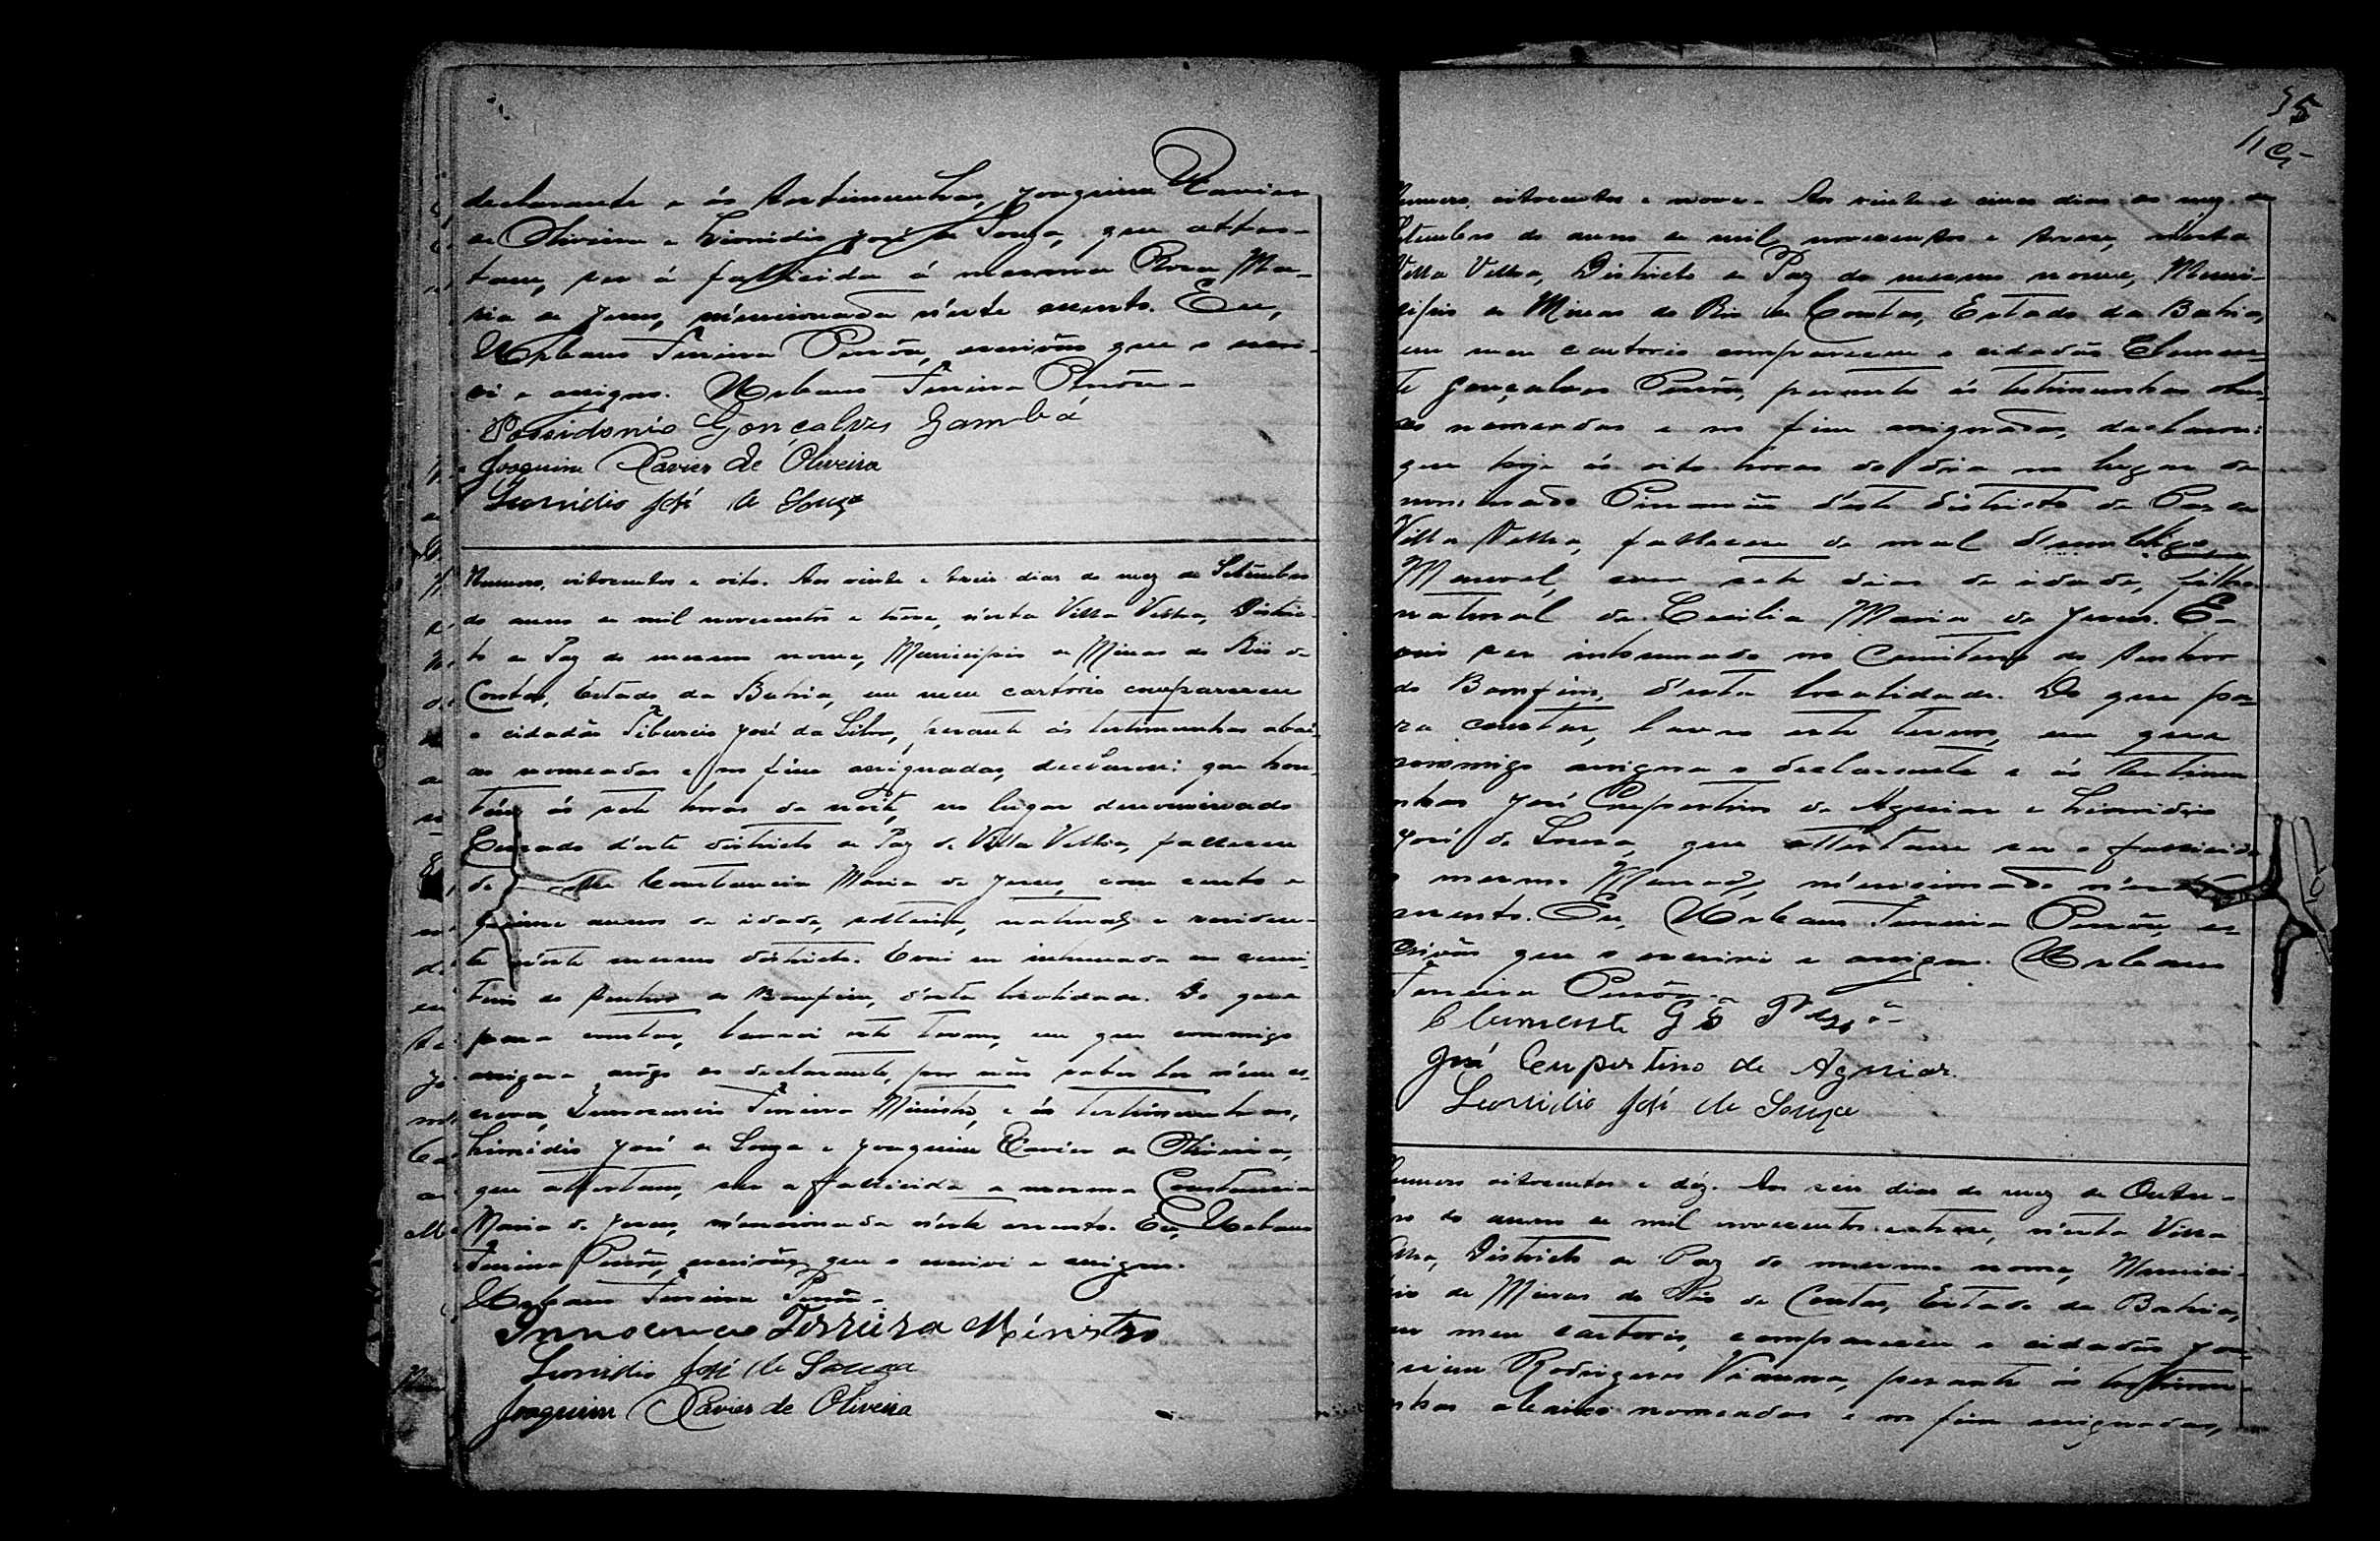 declarante e ás testimunhas, Joaquim Xavier
de Oliveira e Lionidio José de Souza, que attes-
tam, ser á fallicida á mesma Rosa Ma-
ria de Jesus, mencionada n'este assento. Eu,
Urbano Ferreira Pinão, escrivão que o escri-
vi e assigno. Urbano Ferreira
Possidonio Gonçalves Gambá
Joaquim Xavier de Oliveira
Leonidio José de Souza
Numero, oitocentos e oito. Aos vinte e treis dias do mez de Setembro
do anno de mil novecentos e treze, n'esta Villa Velha, Distric-
to de Paz do mesmo nome, Municipio de Minas do Rio de
Contas, Estado da Bahia, em meu cartorio compareceu
o cidadão Tiburcio José da Silva, perante ás testimunhas abai-
xo nomeadas e no fim assignadas, declarou: que hon-
tem ás sete horas da noite, no lugar denominado
d'este districto de Paz de Villa Velha, falleceu
de Constancia Maria de Jesus, com cento e
annos de idade, solteira, natural e residen-
te n'este mesmo districto. E vai ser inhumada no cemi-
terio do Senhor do Bomfim, d'esta localidade. Do que
para constar, lavrei este termo, em que commigo
assigna arôgo do declarante, por não saber ler n'em es-
crever Innocencio Ferreira Ministro, e ás testimunhas,
Lionidio José de Souza e Joaquim Xavier de Oliveira,
que attestam, ser a fallicida a mesma Constancia
Maria de Jesus, mencionada n'este assento. Eu, Urbano
Ferreira escrivão que o escrivi e assigno.
Urbano Ferreira
Innocencio Ferreira Ministro
Leonidio José de Souza
Joaquim Xavier de Oliveira
35
Numero, oitocentos e nove. Aos vinte e cinco dias do mez de
Setembro do anno de mil novecentos e treze, n'esta
Villa Velha, Districto de Paz do mesmo nome, Muni-
cipio de Minas do Rio de Contas, Estado da Bahia,
em meu cartorio compareceu o cidadão Clemen-
te Gonçalves perante ás testimunhas abai-
xo nomeadas e no fim assignadas, declarou:
que hoje ás oito horas do dia no lugar de
nominado d'este districto de Paz de
Villa Velha, falleceu de mal d'umbigo
Manoel, com sete dias de idade, filho
natural de Cecilia Maria de Jesus. E
vai ser inhumado no Cemiterio do Senhor
do Bomfim, d'esta localidade. Do que pa-
ra constar, lavro este termo, em que
commigo assigna o declarante e ás testimu
nhas José Cupertino de Aguiar e Lionidio
José de Souza, que attestam ser o fallicido
o mesmo Manoel, mencionado n'este
assento. Eu, Urbano Ferreira es-
crivão que o escrivi e assigno. Urbano
Ferreira
Clemente
José Cupertino de Aguiar
Leonidio José de Souza
Numero oitocentos e déz. Aos seis dias do mez de Outu-
bro do anno de mil novecentos e treze, n'esta Villa
Velha, Districto de Paz do mesmo nome, Munici-
pio de Minas do Rio de Contas, Estado da Bahia,
em meu cartorio, compareceu o cidadão Joa-
quim Rodrigues Vianna, perante ás testimu-
nhas abaixo nomeadas e no fim assignadas,